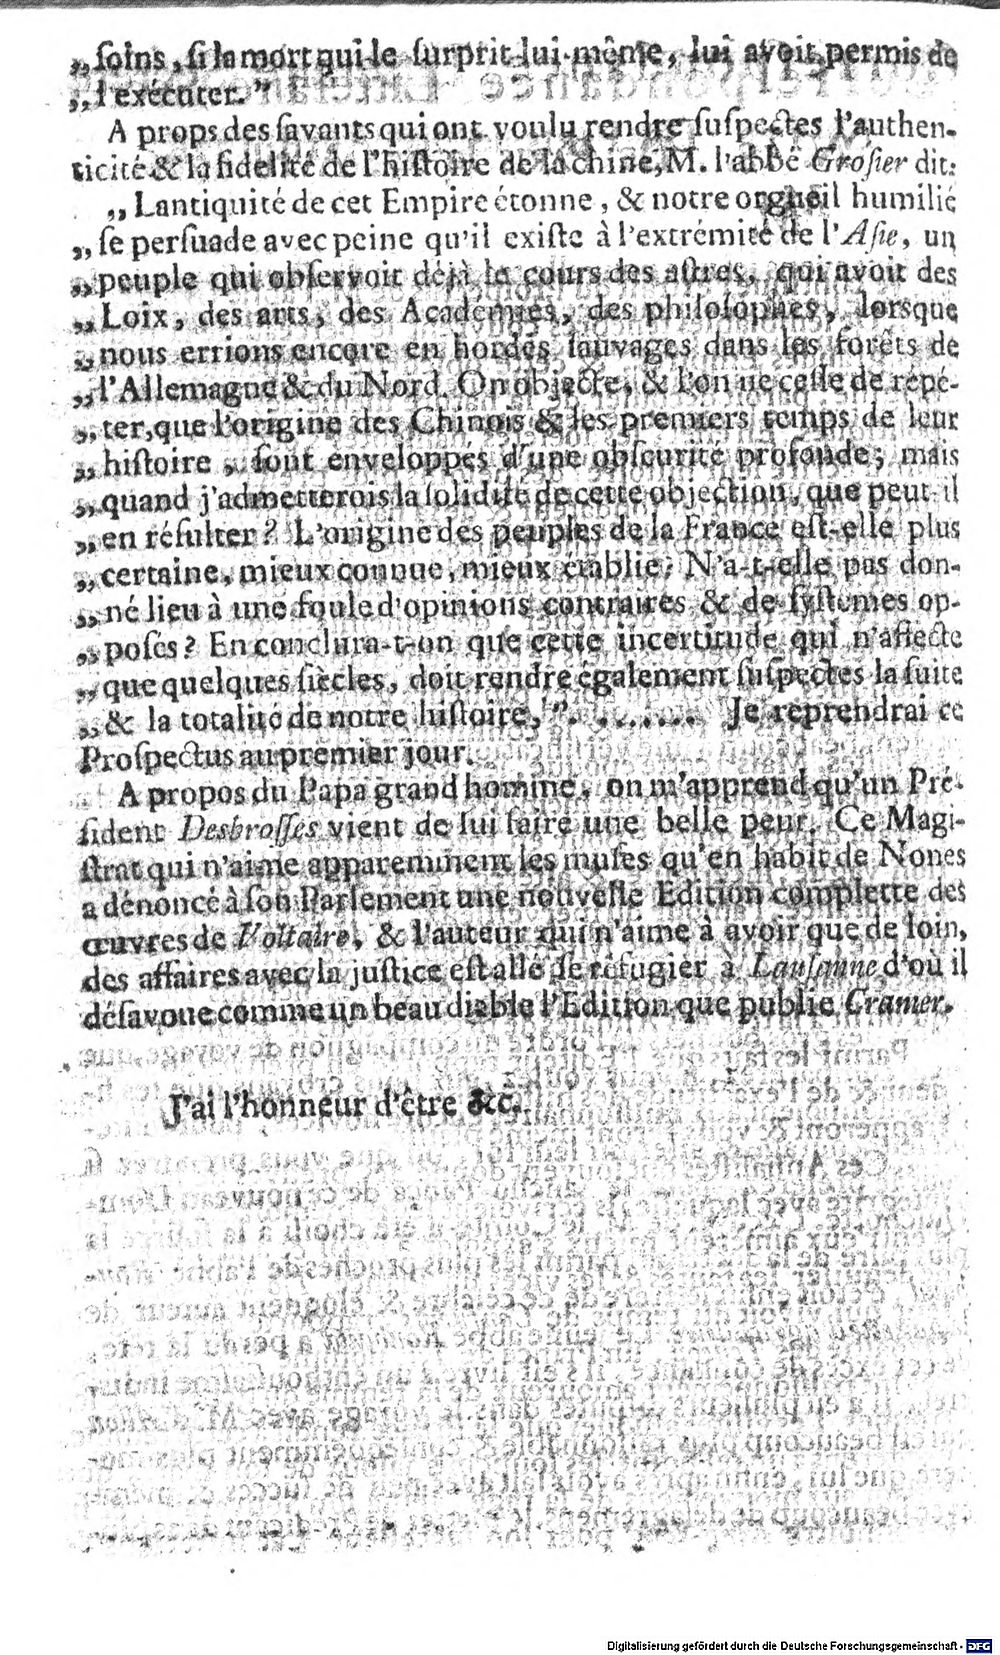 „ſoins, ſi la mort qui le ſurprit lui-même, lui avoit permis de
„l'exécuter."
A props des ſavants qui ont voulu rendre ſuſpectes l'authen-
ticité & la fidelité de l'hiſtoire de la chine, M. l'abbé Groſier dit:
„Lantiquité de cet Empire étonne, & notre orgueil humilié
„ſe perſuade avec peine qu'il exiſte à l'extrémité de l'Aſie, un
„peuple qui obſervoit déjà le cours des aſtres, qui avoit des
„Loix, des arts, des Academies, des philoſophes, lorsque
„nous errions encore en hordes ſauvages dans les forêts de
„l'Allemagne & du Nord. On objecte, & l'on ne ceſſe de répé-
„ter, que l'origine des Chinois & les premiers temps de leur
„hiſtoire, ſont enveloppés d'une obſcurité profonde; mais
„quand j'admetterois la ſolidité de cette objection, que peut-il
„en réſulter? L'origine des peuples de la France eſt-elle plus
„certaine, mieux connue, mieux établie? N'a-t-elle pas don-
„né lieu à une foule d'opinions contraires & de ſyſtemes op-
„poſés? En conclura-t-on que cette incertitude qui n'affecte
„que quelques ſiècles, doit rendre également ſuſpectes la ſuite
„& la totalité de notre hiſtoire,". ....... Je reprendrai ce
Proſpectus au premier jour.
A propos du Papa grand homme, on m'apprend qu'un Pré-
ſident Desbroſſes vient de lui faire une belle peur. Ce Magi-
ſtrat qui n'aime apparemment les muſes qu'en habit de Nones
a dénoncé à ſon Parlement une nouvelle Edition complette des
œuvres de Voltaire, & l'auteur qui n'aime à avoir que de loin,
des affaires avec la juſtice eſt allé ſe réfugier à Lauſanne d'où il
déſavoue comme un beau diable l'Edition que publie Cramer.
J'ai l'honneur d'être &c.
Digitalisierung gefördert durch die Deutsche Forschungsgemeinschaft - DFG